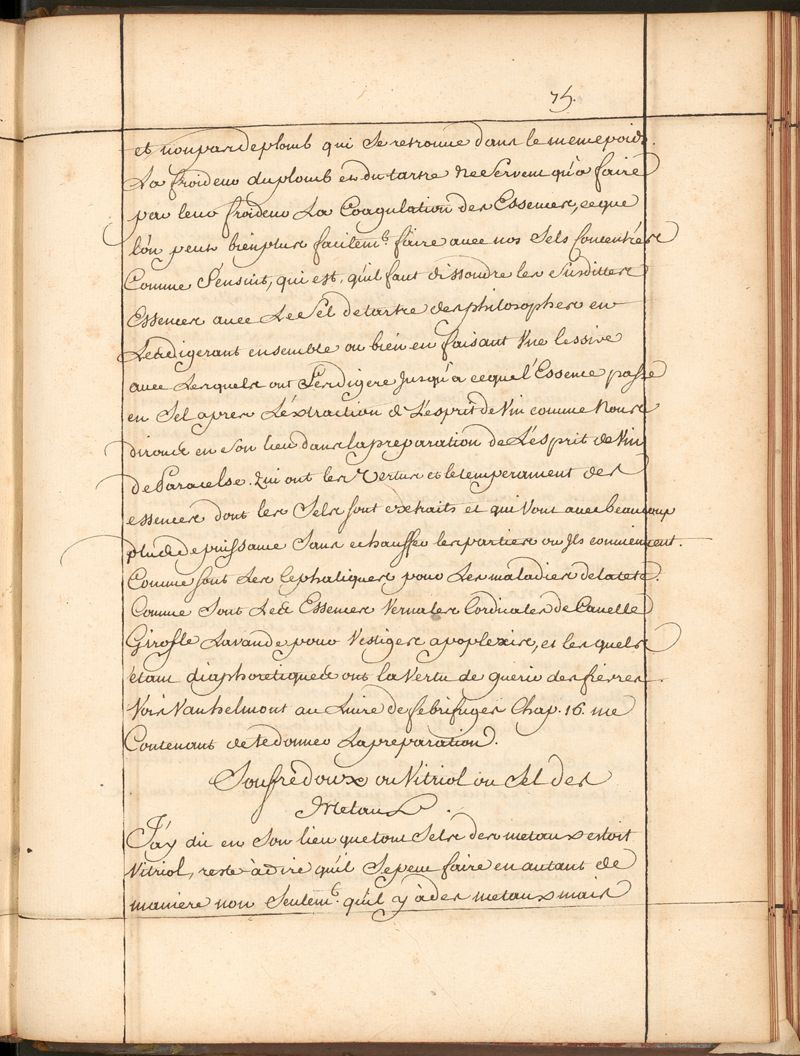 75.
et non par de plomb qui se retrouve dans le meme poids.
La froideur du plomb et du tartre ne servent qu'a faire
par leur froideur La Coagulation des Essences, ce que
l'on peut bien plus facilem.t faire avec nos Sels Concentrés
Comme S'ensuit, qui est, qu'il faut dissoudre les Susdittes
Essences avec Le Sel de tartre des philosophes en
Les digerant ensemble ou bien en faisant Une lessive
avec Lesquels on les digere Jusqu'a ce que l'Essence passe
en Sel apres L'extraction de L'esprit de Vin comme Nous
dirons en Son lieu dans la preparation de L'esprit de Vin
de Paracelse. Qui ont les Vertus et le temperament des
essences dont les Sels sont extraits et qui Vont avec beaucoup
plus de puissance Sans echauffer les parties ou Ils conviennent.
Comme sont Les Cephaliques pour Les maladies de la tete.
Comme Sont Les Essences Vernales Cordiales de Canelle
Girofle Lavande pour Vestiges apoplexie, et les quels
étant diaphoretiques ont la Vertu de guerir des fievres.
Voir Vanhelmont au Livre de febrifuges Chap. 16. me
Contenant de te donner La preparation.
Soufre doux ou Vitriol ou Sel des
Metaux.
J'ay dit en Son lieu que tout Sels des metaux estoit
Vitriol, reste à dire qu'il Se peut faire en autant de
maniere non Seulem.t qu'il y à des metaux mais